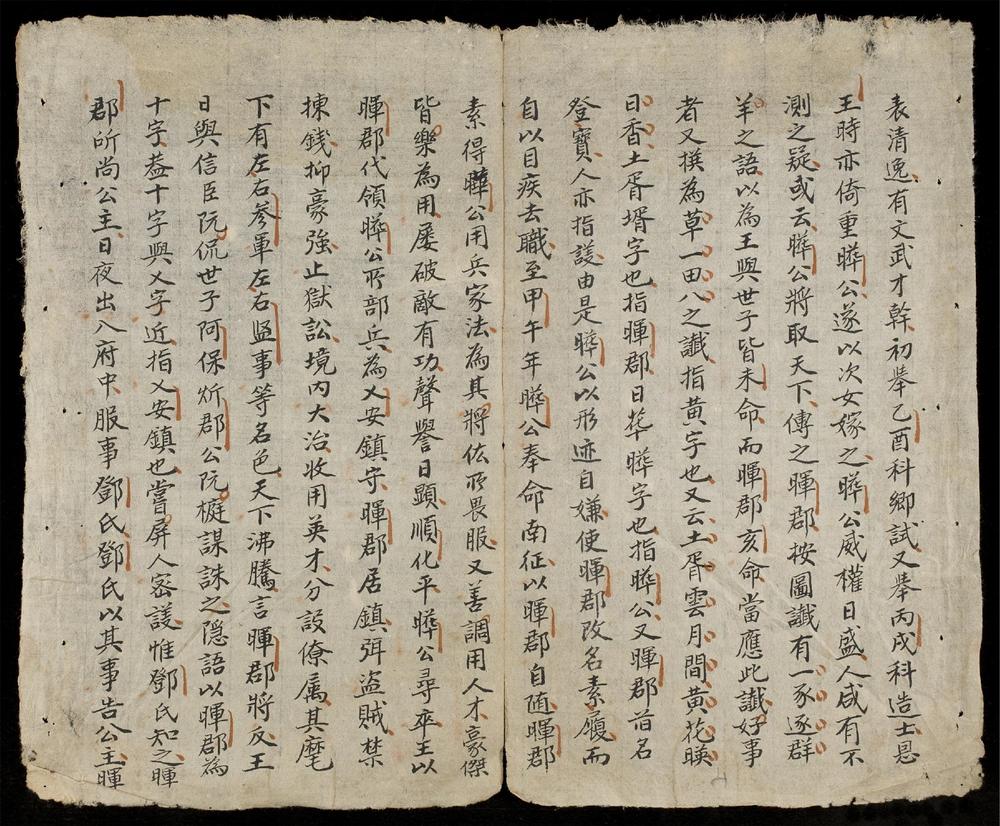 表清逸有文武才幹初舉乙酉科鄉試又舉丙戌科造士恩
王時亦倚重曄公遂以次女嫁之曄公威權日盛人咸有不
測之疑或云曄公將取天下傳之暉郡按圖讖有一豕逐群
羊之語以為王與世子皆未命而暉郡亥命當應此讖好事
者又撰為草一田八之讖指黄字也又云土胥雲月間黄花暎
日香土胥壻字也指暉郡日花曄字也指曄公又暉郡前名
登寶人亦指議由是曄公以形迹自嫌使暉郡改名素履而
自以目疾去職至甲午年曄公奉命南征以暉郡自随暉郡
素得曄公用兵家法為其將佐所畏服又善調用人才豪傑
皆樂為用屡破敵有功聲譽日顯順化平曄公尋卒王以
暉郡代領曄公所部兵為乂安鎮守暉郡居鎮弭盗賊禁
揀錢抑豪強止獄訟境内大治收用英才分設僚属其麾
下有左右参軍左右監事等名色天下沸騰言暉郡將反王
日與信臣阮侃世子阿保炘郡公阮梃謀誅之隠語以暉郡為
十字葢十字與乂字近指乂安鎮也嘗屏人密議惟鄧氏知之暉
郡所尚公主日夜出入府中服事鄧氏鄧氏以其事告公主暉